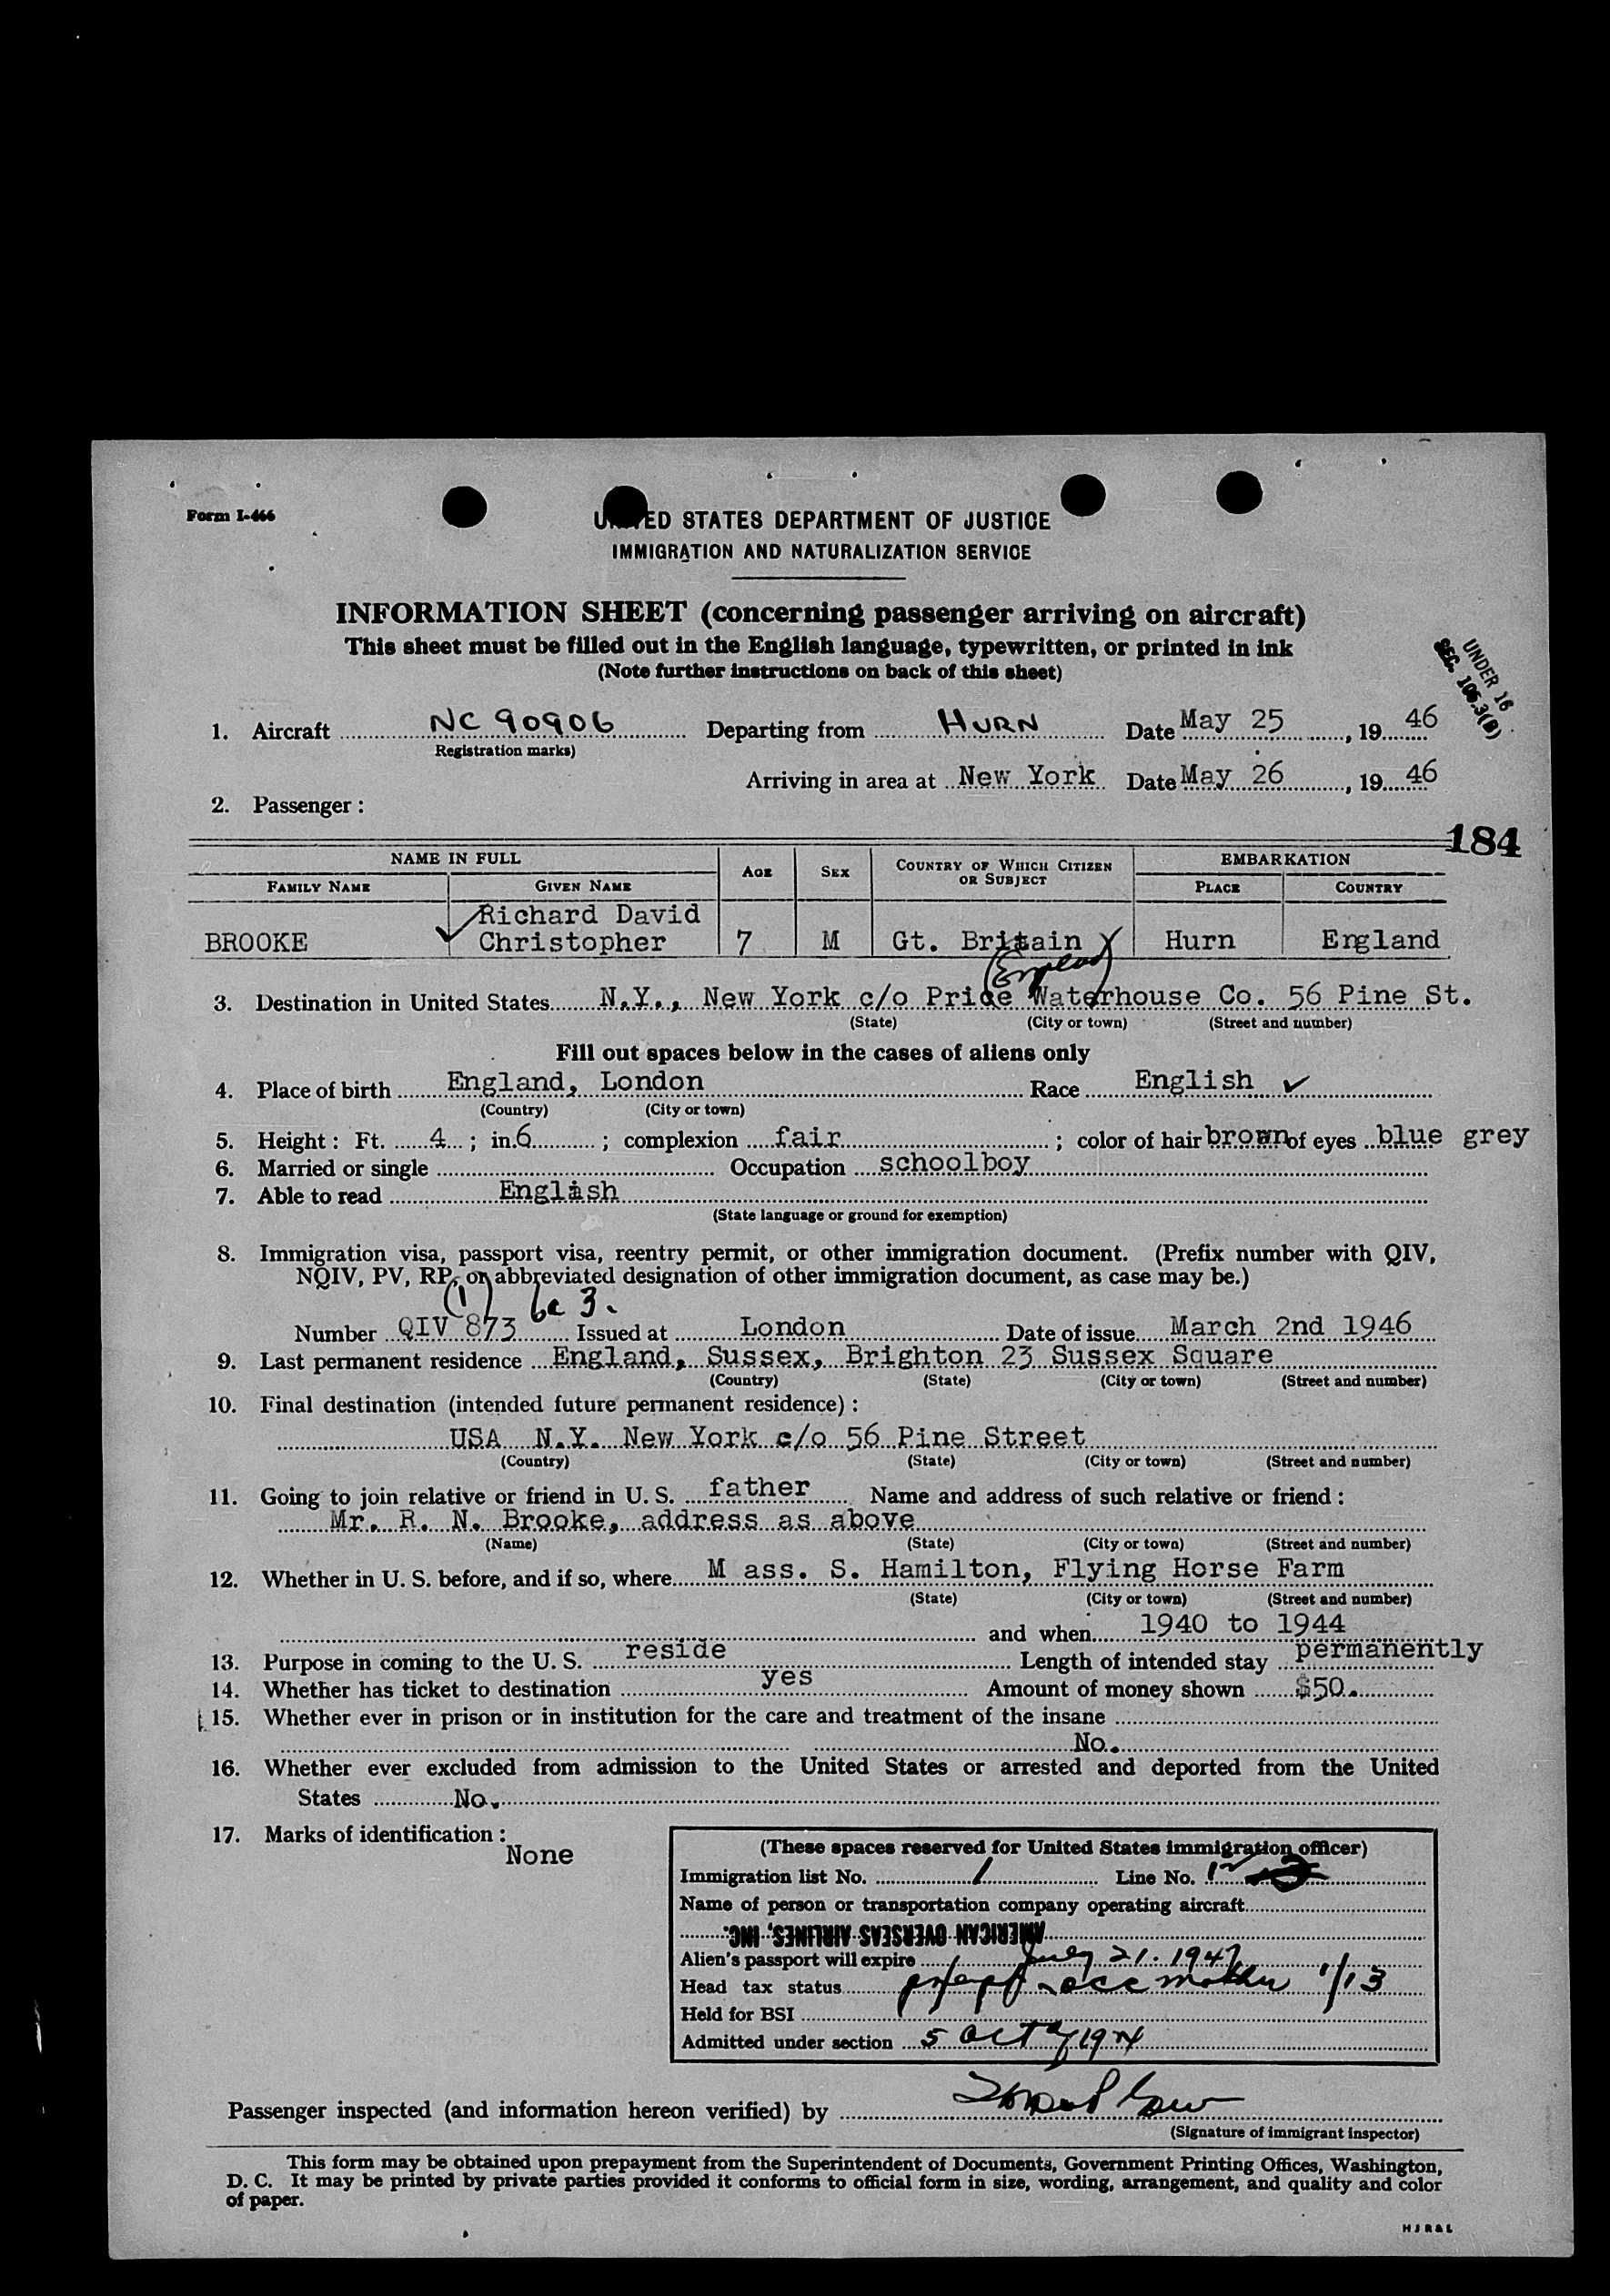 Form I-466
UNITED STATES DEPARTMENT OF JUSTICE
IMMIGRATION AND NATURALIZATION SERVICE
INFORMATION SHEET (concerning passenger arriving on aircraft)
This sheet must be filled out in the English language, typewritten, or printed in ink
(Note further instructions on back of this sheet)
UNDER 16
SEC. 106.3(B)
1. Aircraft NC 90906 Departing from HURN Date May 25, 1946
Registration marks)
Arriving in area at New York Date May 26, 1946
2. Passenger:
184
NAME IN FULL AGE SEX COUNTRY OF WHICH CITIZEN OR SUBJECT EMBARKATION
FAMILY NAME GIVEN NAME PLACE COUNTRY
Richard David
BROOKE Christopher 7 M Gt. Britain Hurn England
(England)
3. Destination in United States N.Y., New York c/o Price Waterhouse Co. 56 Pine St.
(State) (City or town) (Street and number)
Fill out spaces below in the cases of aliens only
4. Place of birth England, London Race English
(Country) (City or town)
5. Height: Ft. 4; in. 6; complexion fair; color of hair brown of eyes blue grey
6. Married or single Occupation schoolboy
7. Able to read English
(State language or ground for exemption)
8. Immigration visa, passport visa, reentry permit, or other immigration document. (Prefix number with QIV,
NQIV, PV, RP, or abbreviated designation of other immigration document, as case may be.)
(1) 6c 3.
Number QIV 873 Issued at London Date of issue March 2nd 1946
9. Last permanent residence England, Sussex, Brighton 23 Sussex Square
(Country) (State) (City or town) (Street and number)
10. Final destination (intended future permanent residence):
USA N.Y. New York c/o 56 Pine Street
(Country) (State) (City or town) (Street and number)
11. Going to join relative or friend in U. S. father Name and address of such relative or friend:
Mr. R. N. Brooke, address as above
(Name) (State) (City or town) (Street and number)
12. Whether in U. S. before, and if so, where M ass. S. Hamilton, Flying Horse Farm
(State) (City or town) (Street and number)
and when 1940 to 1944
13. Purpose in coming to the U. S. reside Length of intended stay permanently
14. Whether has ticket to destination yes Amount of money shown $50.
15. Whether ever in prison or in institution for the care and treatment of the insane
No.
16. Whether ever excluded from admission to the United States or arrested and deported from the United
States No.
17. Marks of identification:
None
(These spaces reserved for United States immigration officer)
Immigration list No. 1 Line No.
Name of person or transportation company operating aircraft
AMERICAN OVERSEAS AIRLINES, INC.
Alien's passport will expire July 21. 1947
Head tax status see mother 1/13
Held for BSI
Admitted under section 5 Act of 1924
Passenger inspected (and information hereon verified) by
(Signature of immigrant inspector)
This form may be obtained upon prepayment from the Superintendent of Documents, Government Printing Offices, Washington,
D. C. It may be printed by private parties provided it conforms to official form in size, wording, arrangement, and quality and color
of paper.
H J R & L